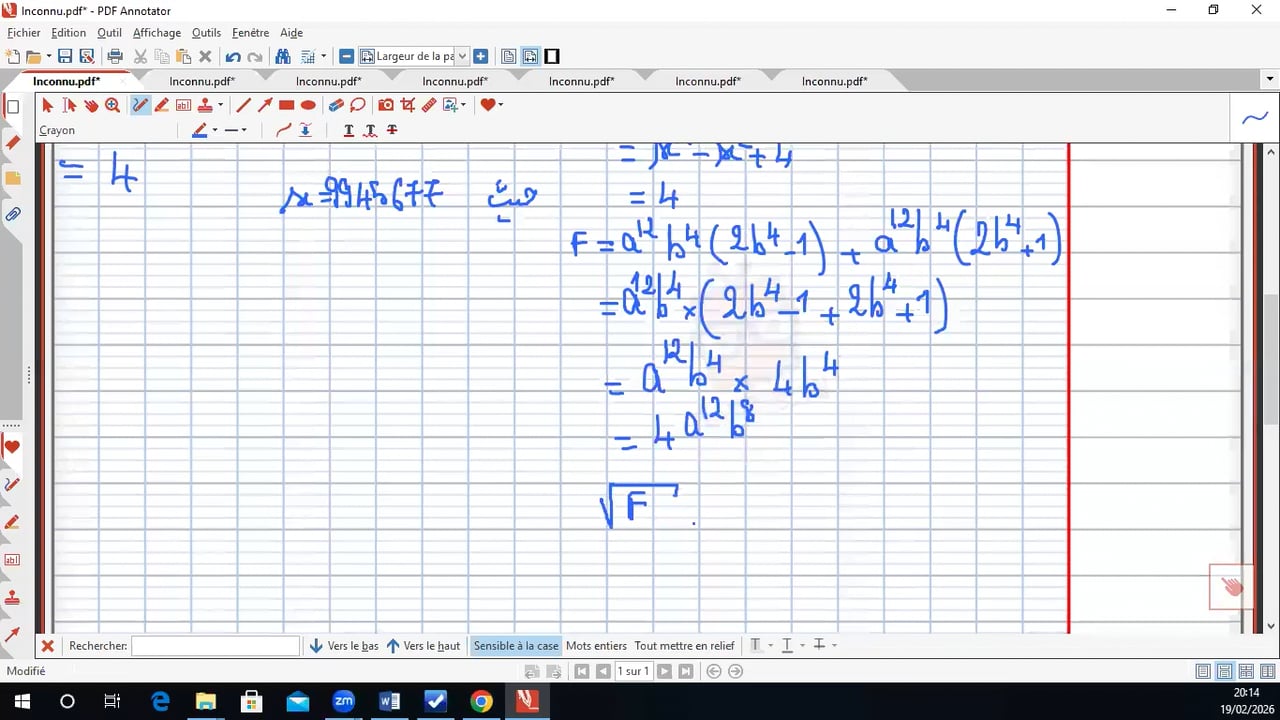 Inconnu.pdf* - PDF Annotator
Fichier Edition Outil Affichage Outils Fenêtre Aide
Largeur de la pa
Inconnu.pdf* Inconnu.pdf* Inconnu.pdf* Inconnu.pdf* Inconnu.pdf* Inconnu.pdf* Inconnu.pdf*
Crayon
= 4
x = 9945677 حيث
= x² - x² + 4
= 4
F = a¹²b⁴(2b⁴-1) + a¹²b⁴(2b⁴+1)
= a¹²b⁴ × (2b⁴-1 + 2b⁴+1)
= a¹²b⁴ × 4b⁴
= 4a¹²b⁸
√F
Rechercher: Vers le bas Vers le haut Sensible à la case Mots entiers Tout mettre en relief
Modifié
1 sur 1
20:14
19/02/2026